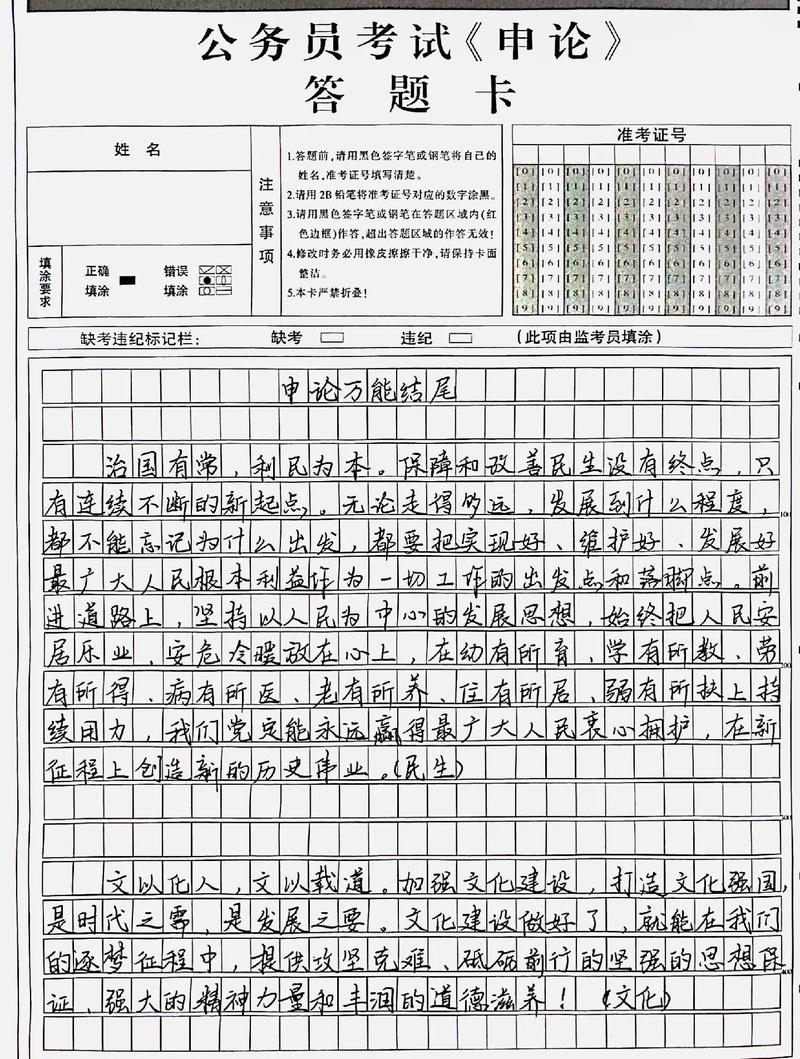 公务员考试《申论》
答题卡
姓名
注意事项
1.答题前,请用黑色签字笔或钢笔将自己的
姓名,准考证号填写清楚。
2.请用2B铅笔将准考证号对应的数字涂黑。
3.请用黑色签字笔或钢笔在答题区域内(红
色边框)作答,超出答题区域的作答无效!
4.修改时务必用橡皮擦擦干净,请保持卡面
整洁。
5.本卡严禁折叠!
填涂要求
正确填涂
错误填涂
准考证号
[0] [0] [0] [0] [0] [0] [0] [0] [0] [0] [0]
[1] [1] [1] [1] [1] [1] [1] [1] [1] [1] [1]
[2] [2] [2] [2] [2] [2] [2] [2] [2] [2] [2]
[3] [3] [3] [3] [3] [3] [3] [3] [3] [3] [3]
[4] [4] [4] [4] [4] [4] [4] [4] [4] [4] [4]
[5] [5] [5] [5] [5] [5] [5] [5] [5] [5] [5]
[6] [6] [6] [6] [6] [6] [6] [6] [6] [6] [6]
[7] [7] [7] [7] [7] [7] [7] [7] [7] [7] [7]
[8] [8] [8] [8] [8] [8] [8] [8] [8] [8] [8]
[9] [9] [9] [9] [9] [9] [9] [9] [9] [9] [9]
缺考违纪标记栏: 缺考 违纪 (此项由监考员填涂)
申论万能结尾
治国有常,利民为本。保障和改善民生没有终点,只
有连续不断的新起点。无论走得多远,发展到什么程度,
都不能忘记为什么出发,都要把实现好、维护好、发展好
最广大人民根本利益作为一切工作的出发点和落脚点。前
进道路上,坚持以人民为中心的发展思想,始终把人民安
居乐业、安危冷暖放在心上,在幼有所育、学有所教、劳
有所得、病有所医、老有所养、住有所居、弱有所扶上持
续用力,我们党定能永远赢得最广大人民衷心拥护,在新
征程上创造新的历史伟业。(民生)
文以化人,文以载道。加强文化建设,打造文化强国,
是时代之需,是发展之要。文化建设做好了,就能在我们
的逐梦征程中,提供攻坚克难、砥砺前行的坚强的思想保
证,强大的精神力量和丰润的道德滋养!(文化)